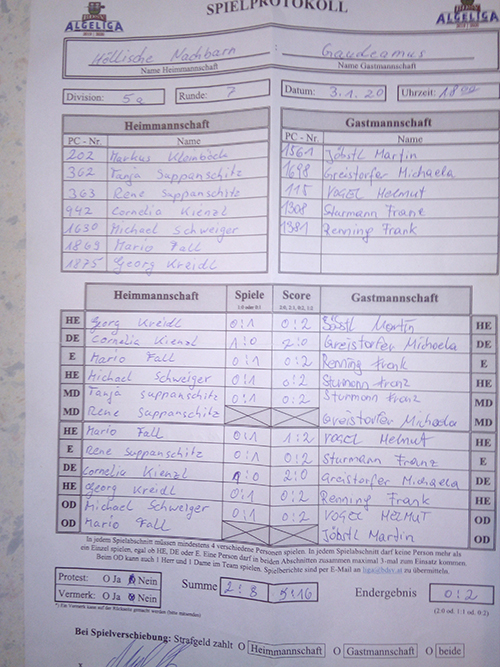 ALGELIGA SPIELPROTOKOLL ALGELIGA
Höllische Nachbarn : Gaudeamus
Name Heimmannschaft Name Gastmannschaft
Division: 5a Runde: 7 Datum: 3.1.20 Uhrzeit: 1800
Heimmannschaft Gastmannschaft
PC - Nr. Name PC - Nr. Name
202 Markus Kleinböck 1561 Jöbstl Martin
362 Tanja Suppanschitz 1698 Greistorfer Michaela
363 Rene Suppanschitz 115 VOGEL HELMUT
942 Cornelia Kienzl 1308 Sturmann Franz
1630 Michael Schweiger 1381 Renning Frank
1869 Mario Fall
1875 Georg Kreidl
Heimmannschaft Spiele Score Gastmannschaft
1:0 oder 0:1 2:0, 2:1, 0:2, 1:2
HE Georg Kreidl 0:1 0:2 Jöbstl Martin HE
DE Cornelia Kienzl 1:0 2:0 Greistorfer Michaela DE
E Mario Fall 0:1 0:2 Renning Frank E
HE Michael Schweiger 0:1 0:2 Sturmann Franz HE
MD Tanja Suppanschitz 0:1 0:2 Sturmann Franz MD
MD Rene Suppanschitz Greistorfer Michaela MD
HE Mario Fall 0:1 1:2 VOGEL HELMUT HE
E Rene Suppanschitz 0:1 0:2 Sturmann Franz E
DE Cornelia Kienzl 1:0 2:0 Greistorfer Michaela DE
HE Georg Kreidl 0:1 0:2 Renning Frank HE
OD Michael Schweiger 0:1 0:2 VOGEL HELMUT OD
OD Mario Fall Jöbstl Martin OD
In jedem Spielabschnitt müssen mindestens 4 verschiedene Personen spielen. In jedem Spielabschnitt darf keine Person mehr als
ein Einzel spielen, egal ob HE, DE oder E. Eine Person darf in beiden Abschnitten zusammen maximal 3-mal zum Einsatz kommen.
Beim OD kann auch 1 Herr und 1 Dame im Team spielen. Spielberichte sind per E-Mail an liga@bdsv.at zu übermitteln.
Protest: O Ja O Nein Summe 2:8 5:16 Endergebnis 0:2
Vermerk: *) O Ja O Nein (2:0 od. 1:1 od. 0:2)
*) Ein Vermerk kann auf der Rückseite gemacht werden (bitte mitsenden)
Bei Spielverschiebung: Strafgeld zahlt O Heimmannschaft O Gastmannschaft O beide